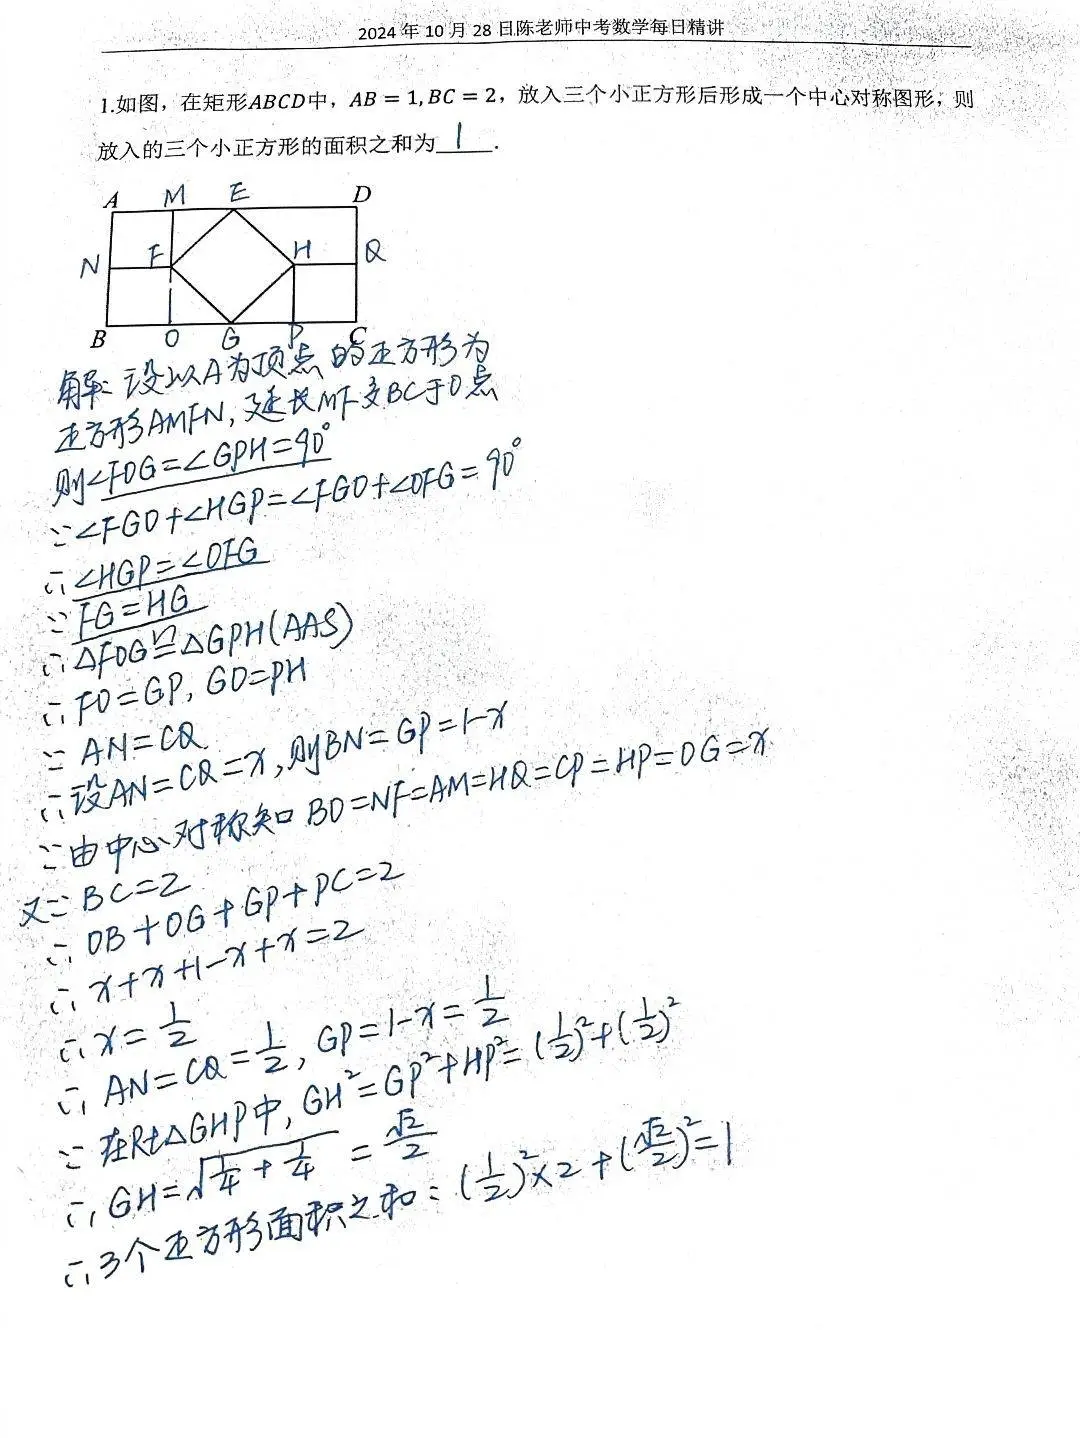 2024年10月28日陈老师中考数学每日精讲
1.如图，在矩形ABCD中，AB = 1, BC = 2，放入三个小正方形后形成一个中心对称图形，则
放入的三个小正方形的面积之和为 1 .
A M E D
N F H Q
B O G P C
解：设以A为顶点的正方形为
正方形AMFN，延长MF交BC于O点
则∠FOG=∠GPH=90°
∵∠FGO+∠HGP=∠FGO+∠OFG=90°
∴∠HGP=∠OFG
∵FG=HG
∴△FOG≌△GPH(AAS)
∴FO=GP, GO=PH
∵AN=CQ
∴设AN=CQ=x,则BN=GP=1-x
∵由中心对称知BO=NF=AM=HQ=CP=HP=OG=x
又∵BC=2
∴OB+OG+GP+PC=2
∴x+x+1-x+x=2
∴x=1/2
∴AN=CQ=1/2, GP=1-x=1/2
∵在Rt△GHP中, GH²=GP²+HP²=(1/2)²+(1/2)²
∴GH=√(1/4+1/4)=√2/2
∴3个正方形面积之和：(1/2)²×2+(√2/2)²=1